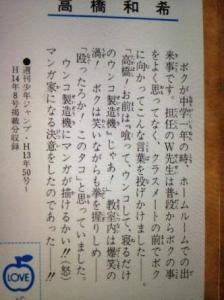 高橋和希
ボクが中学一年の時、ホームルームでの出
来事です。担任のW先生は普段からボクの事
をよく思ってなく、クラスメートの前でボク
に向かってこんな言葉を投げかけました。
「高橋、お前は『喰って、ウンコして、寝るだけ
のウンコ製造機』じゃあ！」教室内は爆笑の
渦！ボクは笑いながらも拳を握りしめ――
「殴ったろか！このタコ」と思っていました。
ウンコ製造機にマンガが描けるかい!!(怒)
マンガ家になる決意をしたのであった――
●週刊少年ジャンプ・H13年50号～
H14年8号掲載分収録
LOVE